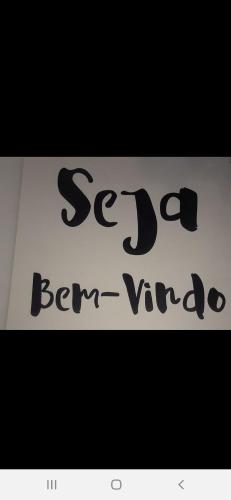 Seja
Bem-Vindo